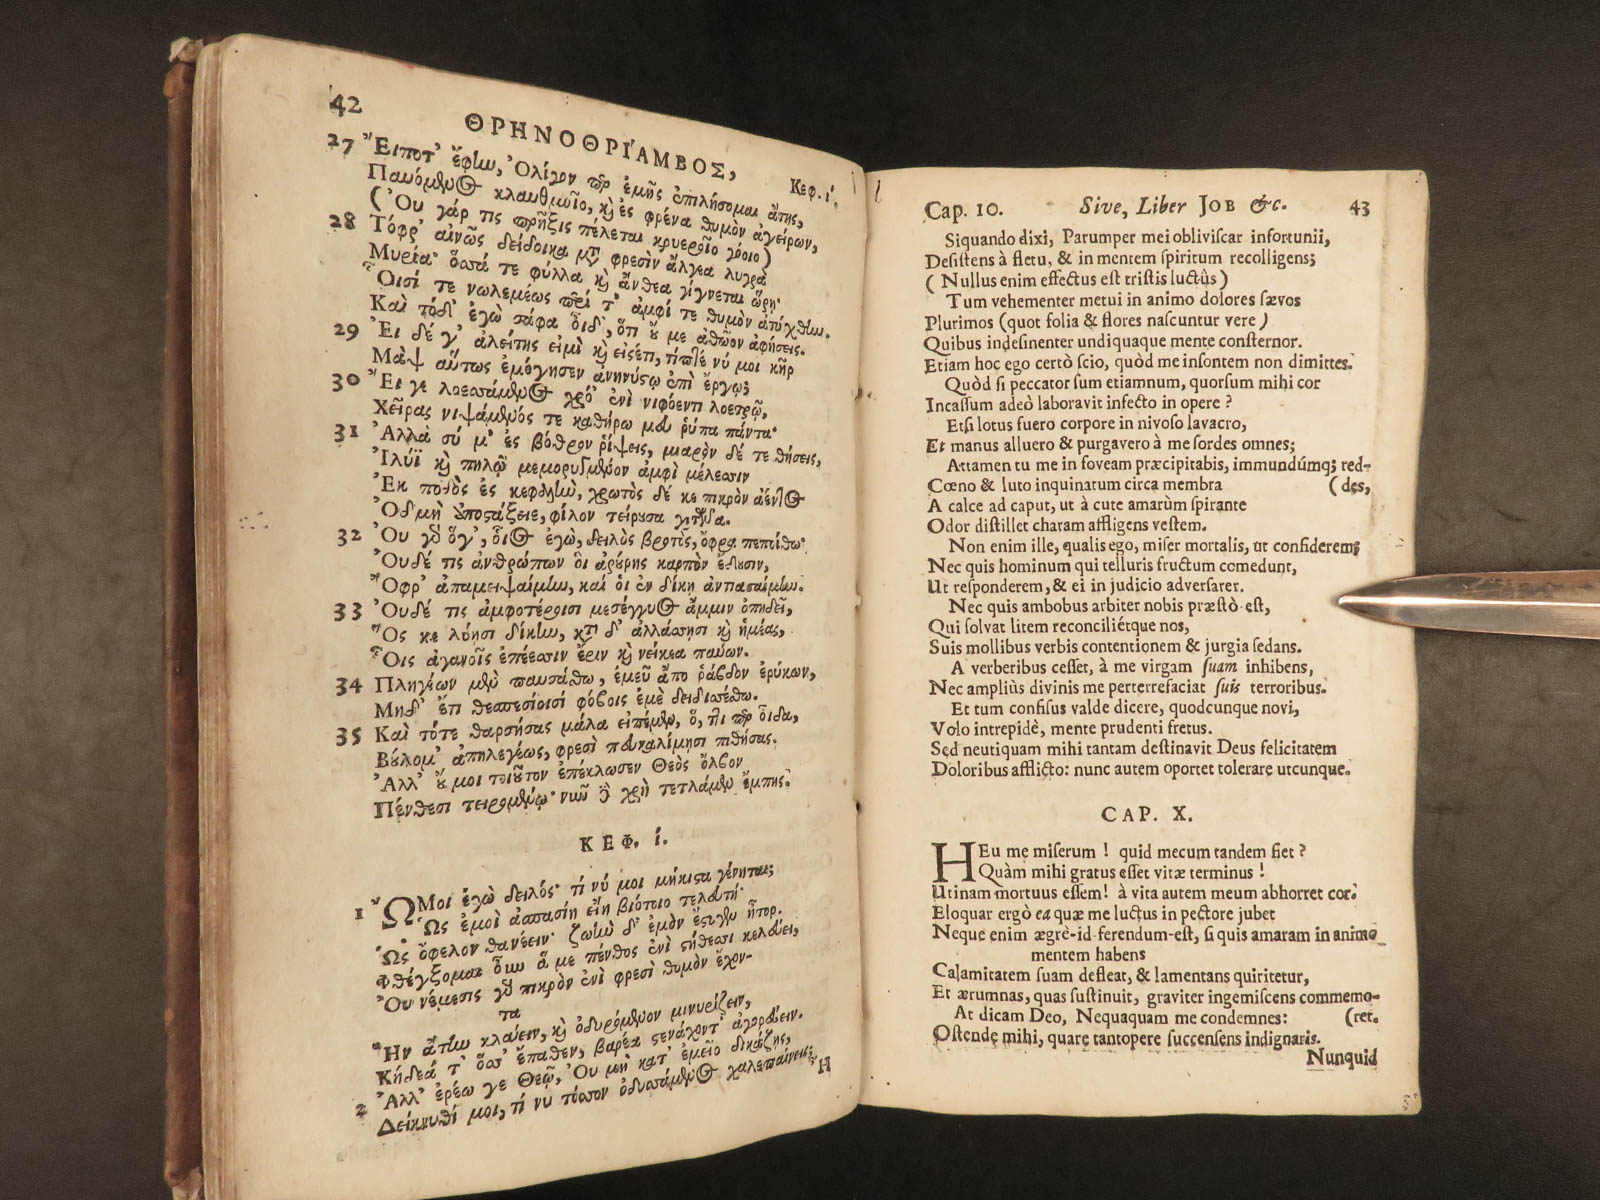 42
ΘΡΗΝΟΘΡΙΆΜΒΟΣ,
Κεφ. ί.
27 Ἔιποτ' ἔφην, Ὀλίγον περ ἐμῆς ἐπιλήσομαι ἄτης,
Παυόμενος κλαυθμοῖο, καὶ ἐς φρένα θυμὸν ἀγείρων,
(Ὀυ γάρ τις πρῆξις πέλεται κρυεροῖο γόοιο)
28 Τόφρ' αἰνῶς δείδοικα μετὰ φρεσὶν ἄλγεα λυγρὰ
Μυρία· ὅσσά τε φύλλα καὶ ἄνθεα γίγνεται ὥρῃ·
Οἷσί τε νωλεμέως περί τ' ἀμφί τε θυμὸν ἀτύχθην.
Καὶ τόδ' ἐγὼ σάφα οἶδ', ὅτι ὔ με ἀθῶον ἀφήσεις.
29 Ἐι δέ γ' ἀλείτης εἰμὶ καὶ εἰσέτι, τίπτε νύ μοι κῆρ
Μὰψ αὕτως ἐμόγησεν ἀνηνύστῳ ἐπὶ ἔργῳ;
30 Ἔι γε λοεσσάμενος χρό' ἐνὶ νιφόεντι λοετρῷ,
Χεῖρας νιψάμενός τε καθήρω μευ ῥύπα πάντα·
31 Ἀλλὰ σύ μ' ἐς βόθρον ῥίψεις, μιαρὸν δέ τε θήσεις,
Ἰλύϊ καὶ πηλῷ μεμορυγμένον ἀμφὶ μέλεσσιν
Ἐκ ποδὸς ἐς κεφαλὴν, χρωτὸς δέ κε πικρὸν ἀέντος
Ὀδμὴ ὑποστάξειε, φίλον τείρουσα χιτῶνα.
32 Ὀυ γὰρ ὅγ', οἷος ἐγὼ, δειλὸς βροτὸς, ὄφρα πεποίθω·
Ὀυδέ τις ἀνθρώπων οἳ ἀρούρης καρπὸν ἔδουσιν,
Ὄφρ' ἀπαμειψαίμην, καί οἱ ἐν δίκῃ ἀντιασαίμην.
33 Ὀυδέ τις ἀμφοτέροισι μεσέγγυος ἄμμιν ὀπηδεῖ,
Ὅς κε λύησι δίκην, κατὰ δ' ἀλλάσσησι καὶ ἡμέας,
Οἷς ἀγανοῖς ἐπέεσσιν ἔριν καὶ νείκεα παύων.
34 Πληγέων μὲν παυσάσθω, ἐμεῦ ἄπο ῥάβδον ἐρύκων,
Μηδ' ἔτι θεσπεσίοισι φόβοις ἐμὲ δειδισσέσθω.
35 Καὶ τότε θαρσήσας μάλα εἰπέμεν, ὅ, τι περ οἶδα,
Βούλομ' ἀπηλεγέως, φρεσὶ πευκαλίμῃσι πιθήσας.
Ἀλλ' ὔ μοι τοιοῦτον ἐπέκλωσεν Θεὸς ὄλβον
Πένθεσι τειρομένῳ· νῦν δὲ χρὴ τετλάμεν ἔμπης.
ΚΕΦ. ί.
1 ὬΜοι ἐγὼ δειλός· τί νύ μοι μήκιστα γένηται;
Ὡς ἐμοὶ ἀσπασίη εἴη βιότοιο τελευτή·
Ὡς ὄφελον θανέειν· ζωὴν δ' ἐμὸν ἔστυγεν ἦτορ.
Φθέγξομαι οὖν ἅ με πένθος ἐνὶ στήθεσσι κελεύει,
Ὀυ νέμεσις γὰρ πικρὸν ἐνὶ φρεσὶ θυμὸν ἔχον-
τα
Ἣν ἄτην κλαίειν, καὶ ὀδυρόμενον μινυρίζειν,
Κήδεά τ' ὅσσ' ἔπαθεν, βαρέα στενάχοντ' ἀγορεύειν.
2 Ἀλλ' ἐρέω γε Θεῷ, Ὀυ μὴ κατ' ἐμεῖο δικάζῃς,
Δείκνυθί μοι, τί νυ τόσσον ὀδυσσάμενος χαλεπαίνεις;
Ἦ
Cap. 10. Sive, Liber JOB &c. 43
Siquando dixi, Parumper mei obliviscar infortunii,
Desistens à fletu, & in mentem spiritum recolligens;
(Nullus enim effectus est tristis luctûs)
Tum vehementer metui in animo dolores sævos
Plurimos (quot folia & flores nascuntur vere)
Quibus indesinenter undiquaque mente consternor.
Etiam hoc ego certò scio, quòd me insontem non dimittes.
Quòd si peccator sum etiamnum, quorsum mihi cor
Incassum adeò laboravit infecto in opere?
Etsi lotus fuero corpore in nivoso lavacro,
Et manus alluero & purgavero à me sordes omnes;
Attamen tu me in foveam præcipitabis, immundúmq; red-
Cœno & luto inquinatum circa membra (des,
A calce ad caput, ut à cute amarùm spirante
Odor distillet charam affligens vestem.
Non enim ille, qualis ego, miser mortalis, ut confiderem;
Nec quis hominum qui telluris fructum comedunt,
Ut responderem, & ei in judicio adversarer.
Nec quis ambobus arbiter nobis præstò est,
Qui solvat litem reconciliétque nos,
Suis mollibus verbis contentionem & jurgia sedans.
A verberibus cesset, à me virgam suam inhibens,
Nec ampliùs divinis me perterrefaciat suis terroribus.
Et tum confisus valde dicere, quodcunque novi,
Volo intrepidè, mente prudenti fretus.
Sed neutiquam mihi tantam destinavit Deus felicitatem
Doloribus afflicto: nunc autem oportet tolerare utcunque.
CAP. X.
HEu me miserum! quid mecum tandem fiet?
Quàm mihi gratus esset vitæ terminus!
Utinam mortuus essem! à vita autem meum abhorret cor.
Eloquar ergò ea quæ me luctus in pectore jubet
Neque enim ægrè-id-ferendum-est, si quis amaram in animo
mentem habens
Calamitatem suam defleat, & lamentans quiritetur,
Et ærumnas, quas sustinuit, graviter ingemiscens commemo-
At dicam Deo, Nequaquam me condemnes: (ret.
Ostende mihi, quare tantopere succensens indignaris.
Nunquid